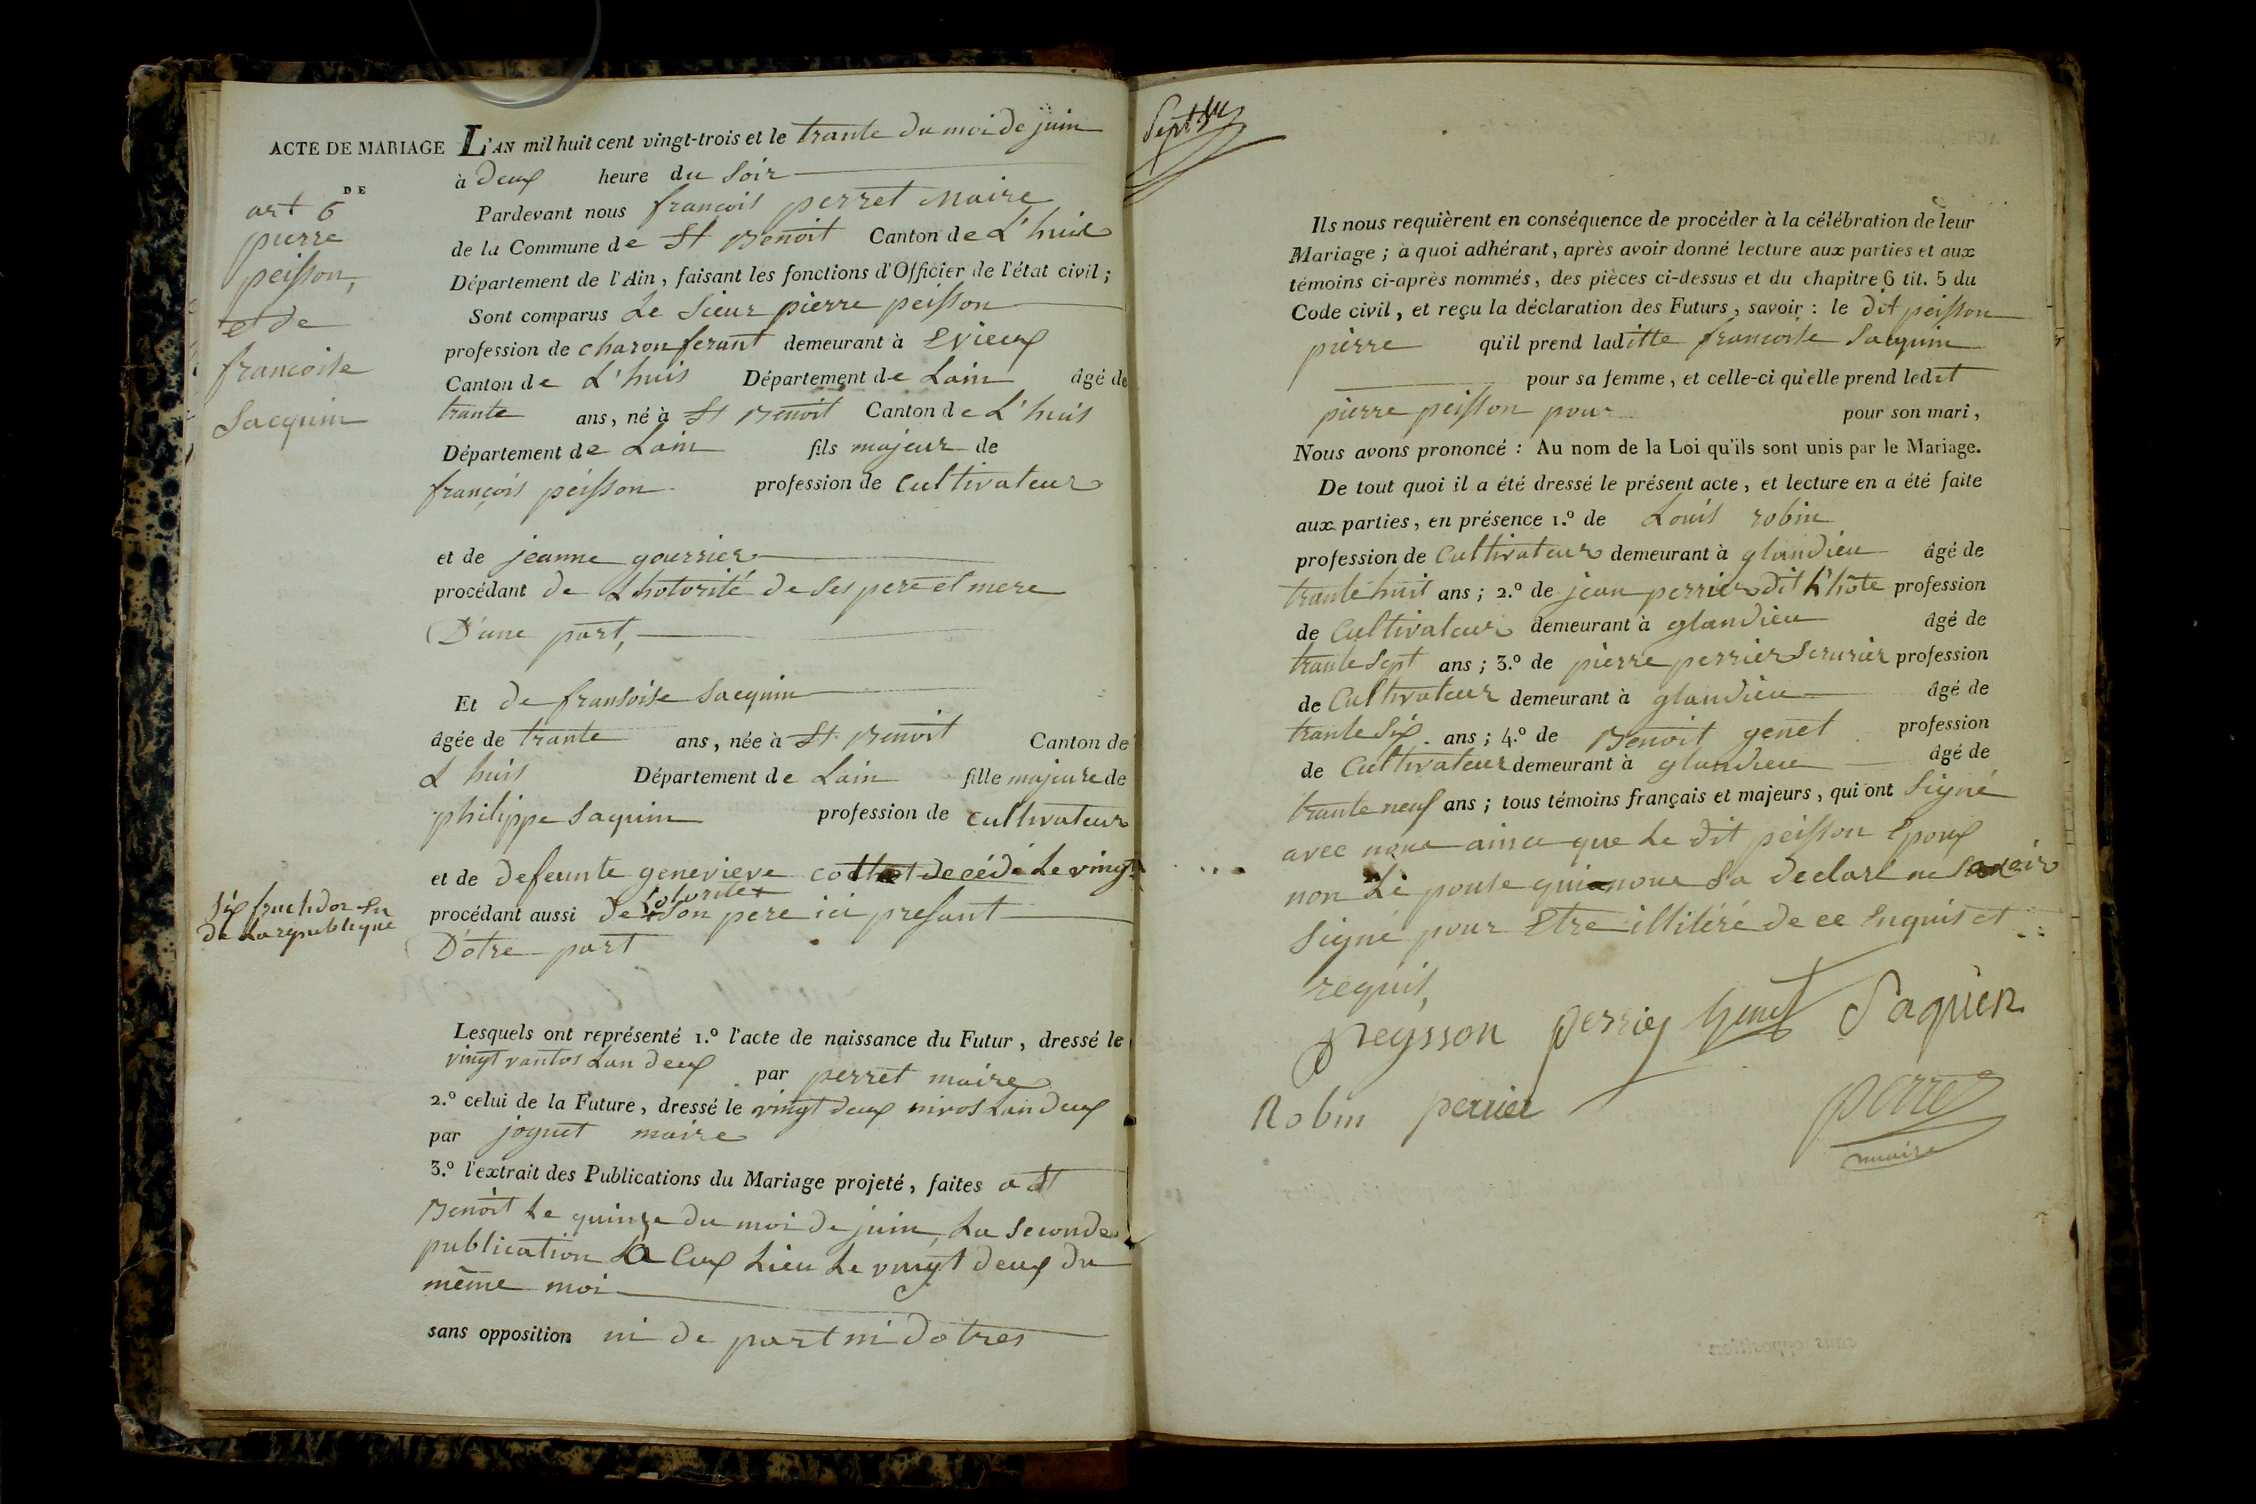 ACTE DE MARIAGE
DE
art 6
pierre
peisson,
et de
francoise
Sacquin
L'AN mil huit cent vingt-trois et le trante du moi de juin
à deux heure du Soir
Pardevant nous francois perret Maire
de la Commune de St Benoit Canton de L'huis
Département de l'Ain, faisant les fonctions d'Officier de l'état civil;
Sont comparus Le Sieur pierre peisson
profession de charon ferant demeurant à Evieux
Canton de L'huis Département de Lain âgé de
trante ans, né à St Benoit Canton de L'huis
Département de Lain fils majeur de
françois peisson profession de Cultivateur
et de jeanne gourrier
procédant de Lhotorité de Ses pere et mere
D'une part,
Et de fransoise Sacquin
âgée de trante ans, née à St Benoit Canton de
L huis Département de Lain fille majeure de
philippe Saquin profession de Cultivateur
et de defeunte genevieve decédé Le vingt
Six fructidor
de La republique
Lotorité
procédant aussi de Son pere ici presant
D'otre part
Lesquels ont représenté 1.º l'acte de naissance du Futur, dressé le
vingt vantos Lan deux par perret maire
2.º celui de la Future, dressé le vingt deux nivos Lan deux
par joguet maire
3.º l'extrait des Publications du Mariage projeté, faites a St
Benoit Le quinze du moi de juin, La Seconde
publication Lieu Le vingt deux du
même moi
sans opposition ni de part ni dotres
Ils nous requièrent en conséquence de procéder à la célébration de leur
Mariage; à quoi adhérant, après avoir donné lecture aux parties et aux
témoins ci-après nommés, des pièces ci-dessus et du chapitre 6 tit. 5 du
Code civil, et reçu la déclaration des Futurs, savoir: le dit peisson
pierre qu'il prend laditte francoise Sacquin
pour sa femme, et celle-ci qu'elle prend ledit
pierre peisson pour pour son mari,
Nous avons prononcé: Au nom de la Loi qu'ils sont unis par le Mariage.
De tout quoi il a été dressé le présent acte, et lecture en a été faite
aux parties, en présence 1.º de Louis robin
profession de Cultivateur demeurant à glandieu âgé de
trante huit ans; 2.º de jean perrier dit L'hôte profession
de Cultivateur demeurant à glandieu âgé de
trante Sept ans; 3.º de pierre perrier Serurier profession
de Cultivateur demeurant à glandieu âgé de
trante Six ans; 4.º de Benoit genet profession
de Cultivateur demeurant à glandieu âgé de
trante neuf ans; tous témoins français et majeurs, qui ont Signé
avec nous ainci que Le dit peisson Epoux
non Le pouse qui nous Sa declaré ne Savoir
Signé pour Etre illitéré de ce Enquis et
requis,
peysson perrier Genet Saquin
Robin perrier perret
maire